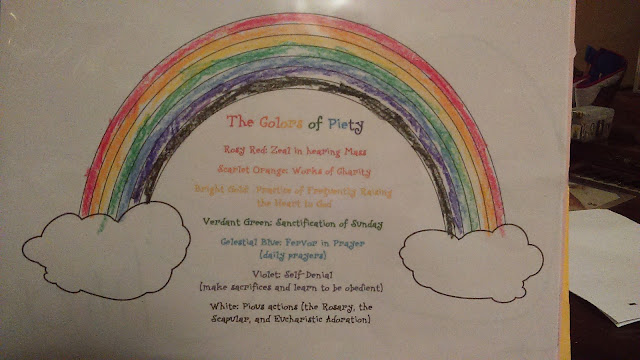 The Colors of Piety
Rosy Red: Zeal in hearing Mass
Scarlet Orange: Works of Charity
Bright Gold: Practice of Frequently Raising
the Heart to God
Verdant Green: Sanctification of Sunday
Celestial Blue: Fervor in Prayer
(daily prayers)
Violet: Self-Denial
(make sacrifices and learn to be obedient)
White: Pious actions (the Rosary, the
Scapular, and Eucharistic Adoration)